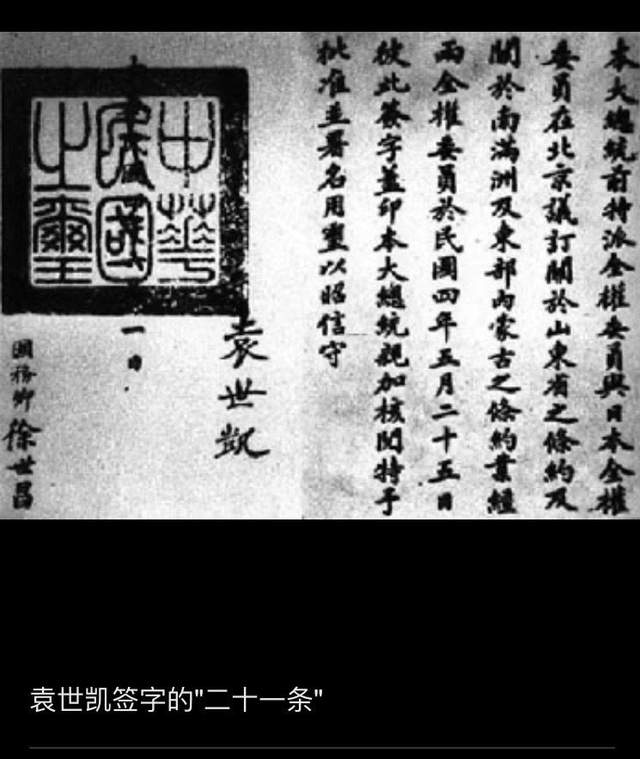 本大總統前特派全權委員與日本全權
委員在北京議訂關於山東省之條約及
關於南滿洲及東部內蒙古之條約業經
兩全權委員於民國四年五月二十五日
彼此簽字蓋印本大總統親加核閱特予
批准並署名用璽以昭信守
袁世凱
中華
民國
之璽
一日
國務卿徐世昌
袁世凯签字的"二十一条"